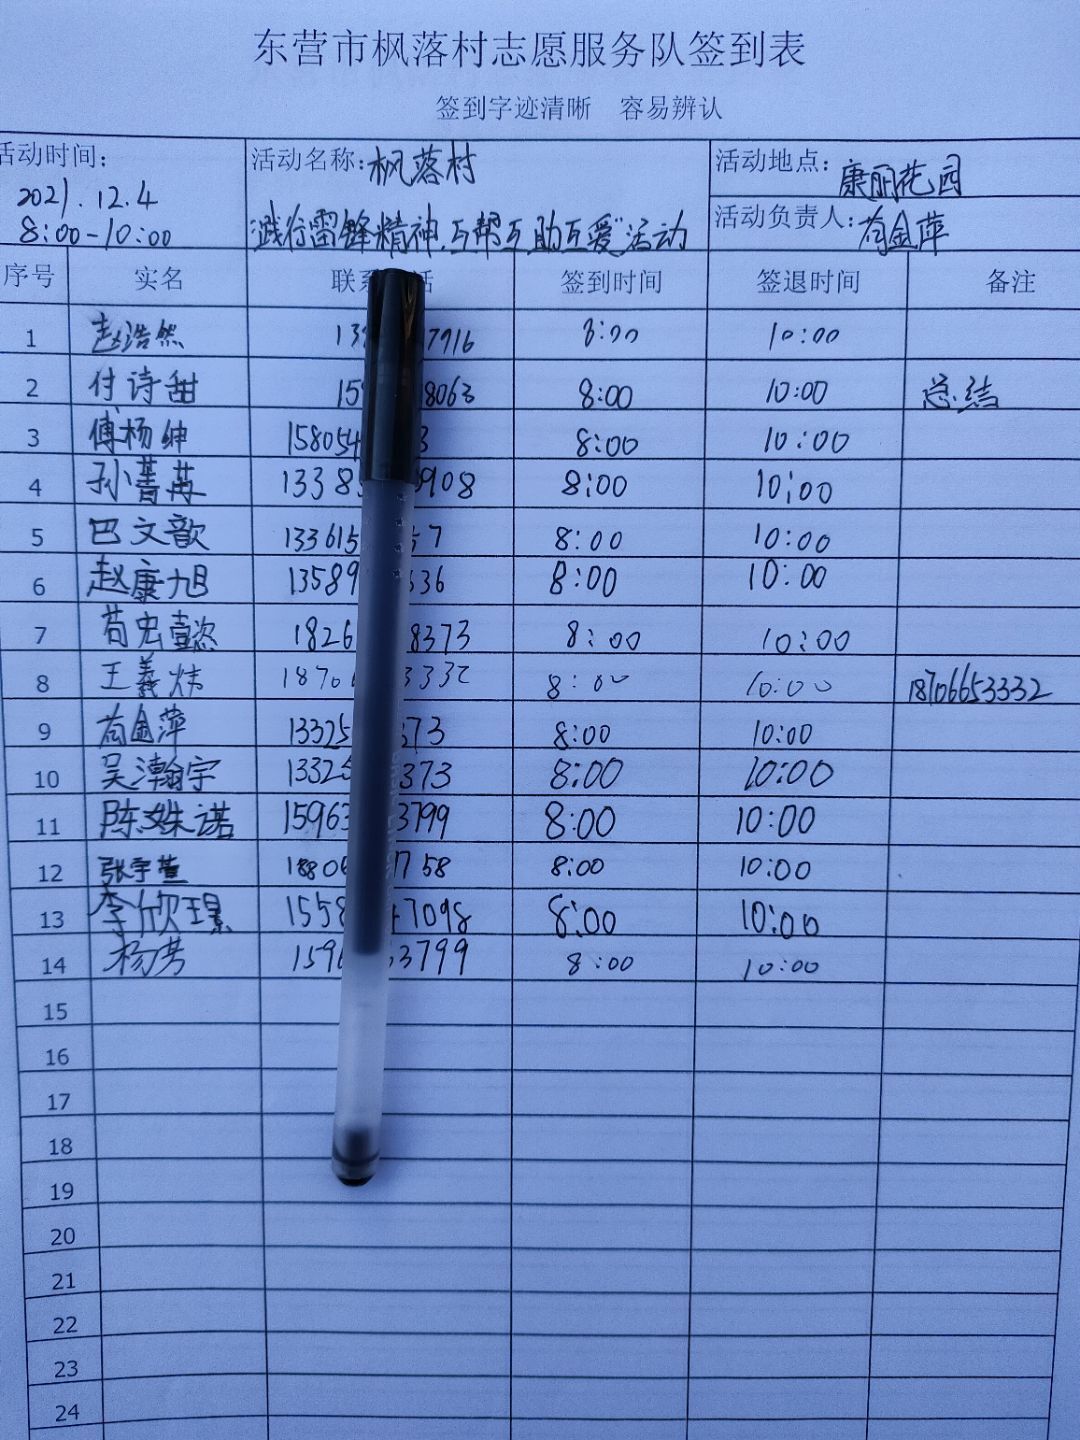 东营市枫落村志愿服务队签到表
签到字迹清晰 容易辨认
活动时间: 2021.12.4 8:00-10:00
活动名称:枫落村
"践行雷锋精神,互帮互助互爱"活动
活动地点: 康丽花园
活动负责人: 苟金萍
序号 实名 联系 话 签到时间 签退时间 备注
1 赵浩然 13 7916 8:00 10:00
2 付诗甜 15 8063 8:00 10:00 总结
3 傅杨绅 158054 3 8:00 10:00
4 孙菁苒 1338 908 8:00 10:00
5 巴文歆 133615 57 8:00 10:00
6 赵康旭 13589 536 8:00 10:00
7 苟宏壹 1826 8373 8:00 10:00
8 王義炜 1870 3332 8:00 10:00 18706653332
9 苟金萍 13325 373 8:00 10:00
10 吴瀚宇 13325 373 8:00 10:00
11 陈姝诺 15963 3799 8:00 10:00
12 张宇萱 1880 1758 8:00 10:00
13 李欣璟 1558 7098 8:00 10:00
14 杨芳 159 3799 8:00 10:00
15
16
17
18
19
20
21
22
23
24